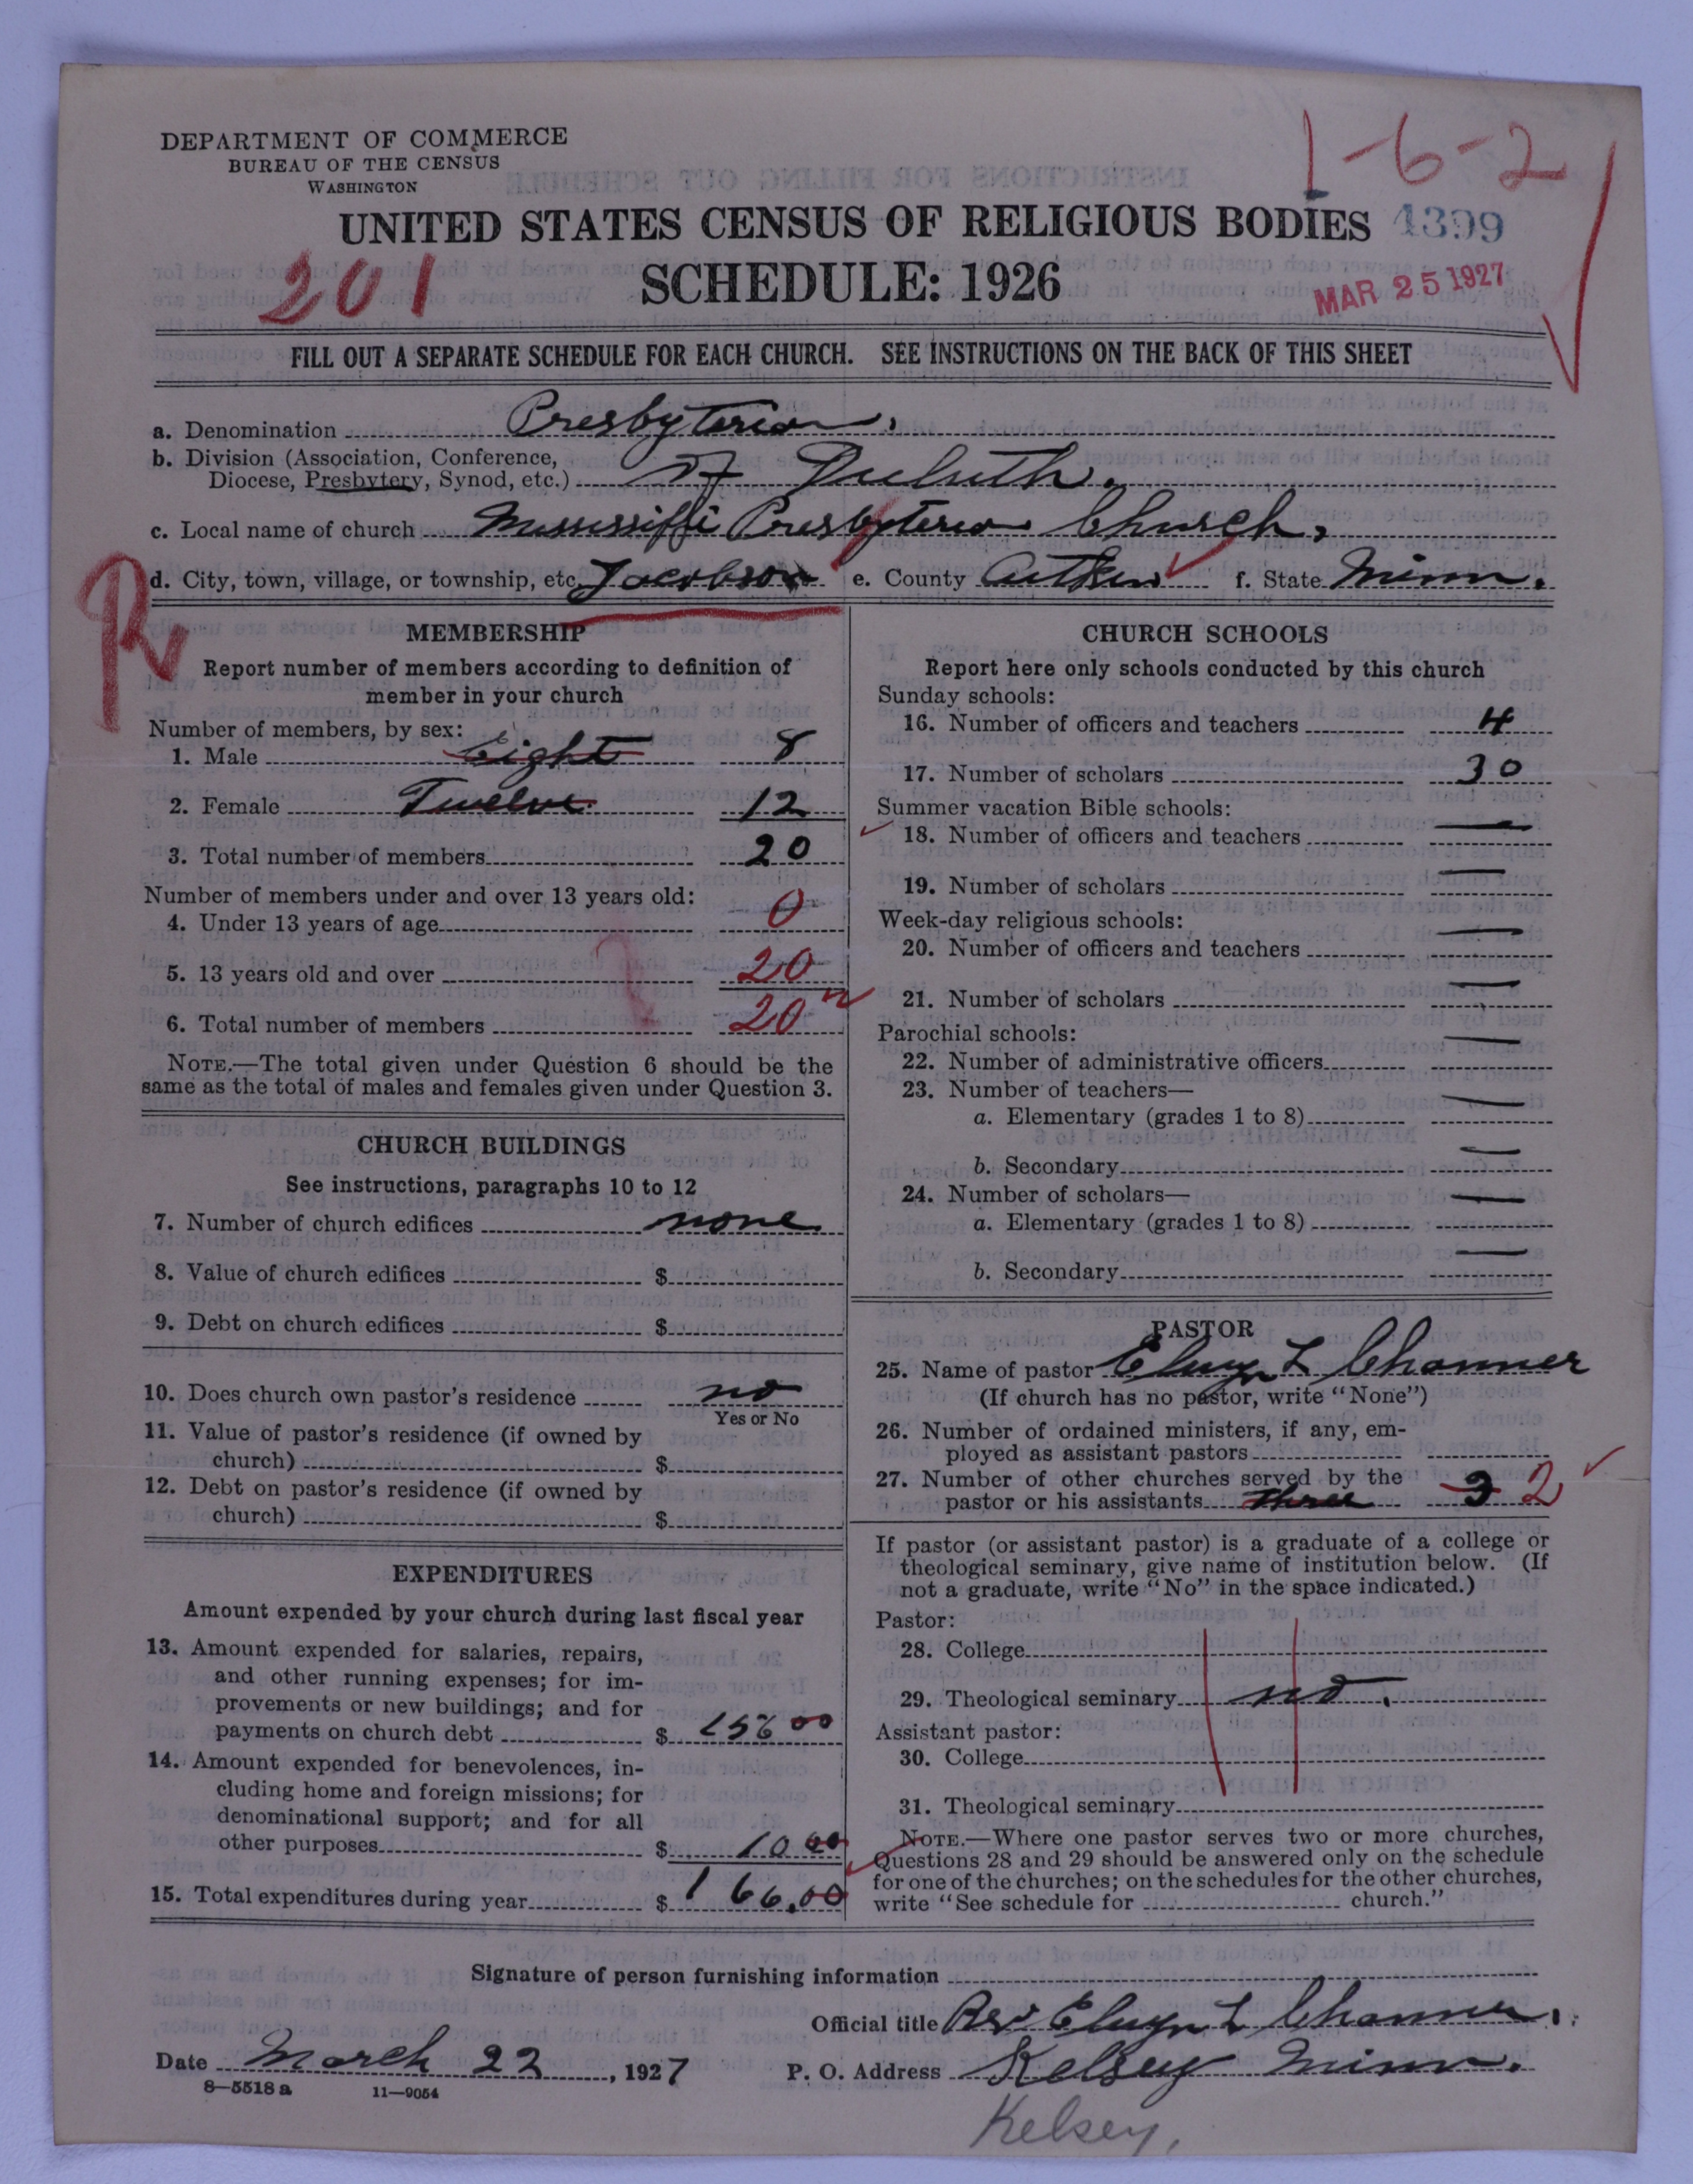 1-6-2
DEPARTMENT OF COMMERCE
BUREAU OF THE CENSUS
WASHINGTON
UNITED STATES CENSUS OF RELIGIOUS BODIES 4399
201 SCHEDULE: 1926 MAR 25 1927
FILL OUT A SEPARATE SCHEDULE FOR EACH CHURCH. SEE INSTRUCTIONS ON THE BACK OF THIS SHEET
a. Denomination Presbyterian.
b. Division (Association, Conference,
Diocese, Presbytery, Synod, etc.) of Duluth.
c. Local name of church Mississippi Presbyterian Church,
d. City, town, village, or township, etc. Jacobson e. County Aitken f. State Minn.
R
MEMBERSHIP
Report number of members according to definition of
member in your church
Number of members, by sex:
1. Male Eight 8
2. Female Twelve. 12
3. Total number of members 20
Number of members under and over 13 years old:
4. Under 13 years of age 0
5. 13 years old and over 20
6. Total number of members 20
NOTE.—The total given under Question 6 should be the
same as the total of males and females given under Question 3.
CHURCH BUILDINGS
See instructions, paragraphs 10 to 12
7. Number of church edifices none
8. Value of church edifices $
9. Debt on church edifices $
10. Does church own pastor's residence no
Yes or No
11. Value of pastor's residence (if owned by
church) $
12. Debt on pastor's residence (if owned by
church) $
EXPENDITURES
Amount expended by your church during last fiscal year
13. Amount expended for salaries, repairs,
and other running expenses; for im-
provements or new buildings; and for
payments on church debt $ 156 00
14. Amount expended for benevolences, in-
cluding home and foreign missions; for
denominational support; and for all
other purposes $ 10 00
15. Total expenditures during year $ 166.00
CHURCH SCHOOLS
Report here only schools conducted by this church
Sunday schools:
16. Number of officers and teachers 4
17. Number of scholars 30
Summer vacation Bible schools:
18. Number of officers and teachers —
19. Number of scholars —
Week-day religious schools:
20. Number of officers and teachers —
21. Number of scholars —
Parochial schools:
22. Number of administrative officers —
23. Number of teachers—
a. Elementary (grades 1 to 8) —
b. Secondary —
24. Number of scholars—
a. Elementary (grades 1 to 8) —
b. Secondary —
PASTOR
25. Name of pastor Elwyn L Channer
(If church has no pastor, write "None")
26. Number of ordained ministers, if any, em-
ployed as assistant pastors
27. Number of other churches served by the
pastor or his assistants three 3 2
If pastor (or assistant pastor) is a graduate of a college or
theological seminary, give name of institution below. (If
not a graduate, write "No" in the space indicated.)
Pastor:
28. College
29. Theological seminary no.
Assistant pastor:
30. College
31. Theological seminary
NOTE.—Where one pastor serves two or more churches,
Questions 28 and 29 should be answered only on the schedule
for one of the churches; on the schedules for the other churches,
write "See schedule for church."
Signature of person furnishing information
Official title Rev Elwyn L Channer.
Date March 22, 1927 P. O. Address Kelsey Minn.
8—5518 a 11—9054
Kelsey,